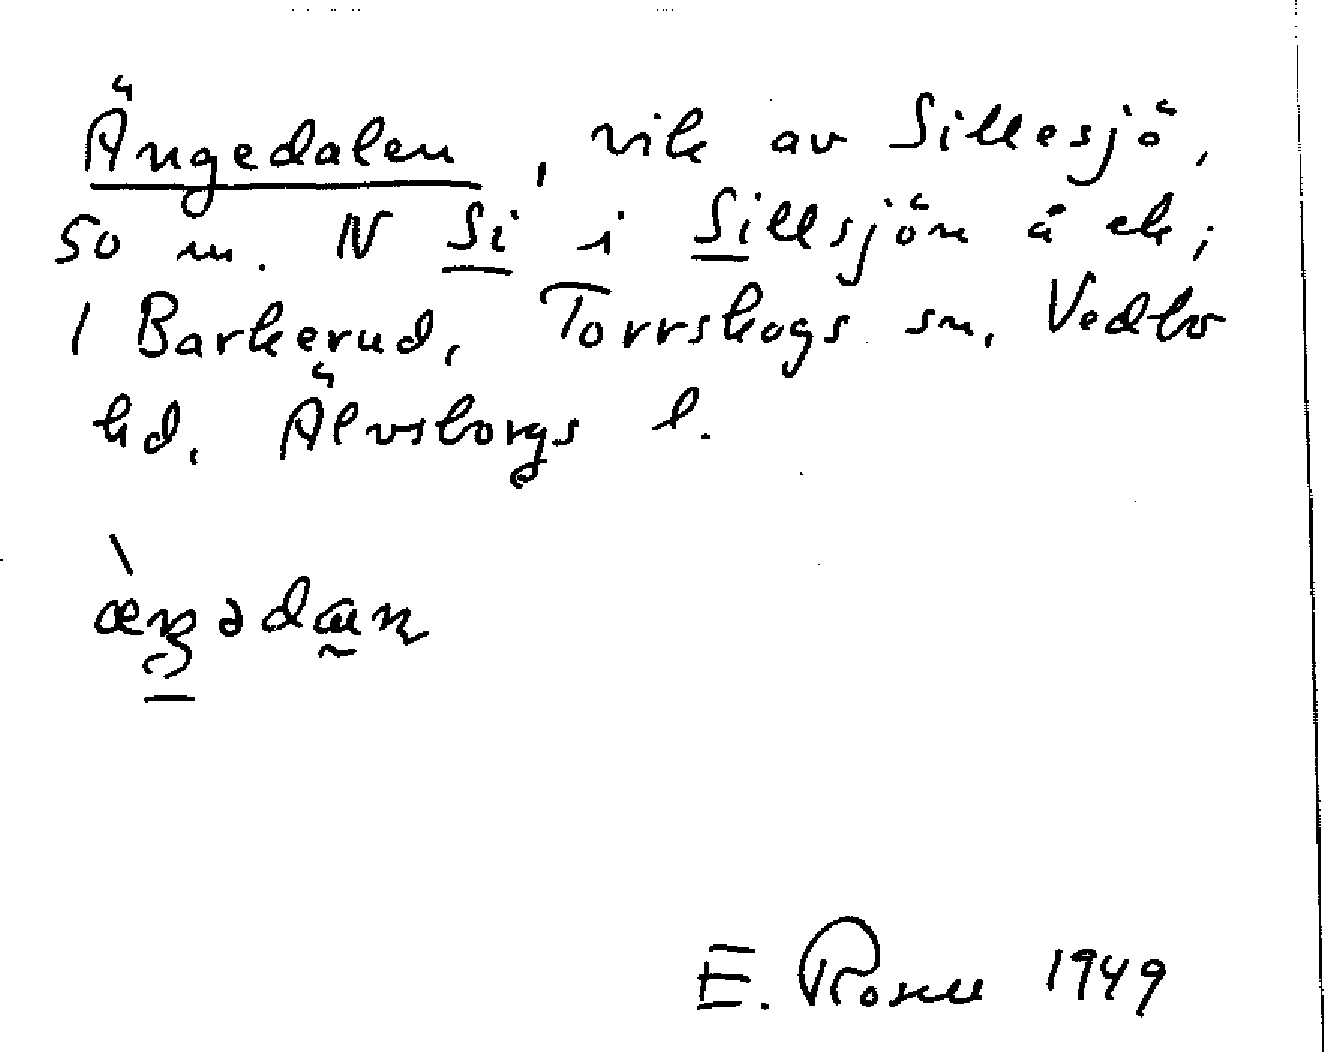 Ängedalen, vik av Sillesjö,
50 m. N Si i Sillsjön å ek;
1 Barkerud, Torrskogs sn, Vedbo
hd, Älvsborgs l.
E. Rosell 1949